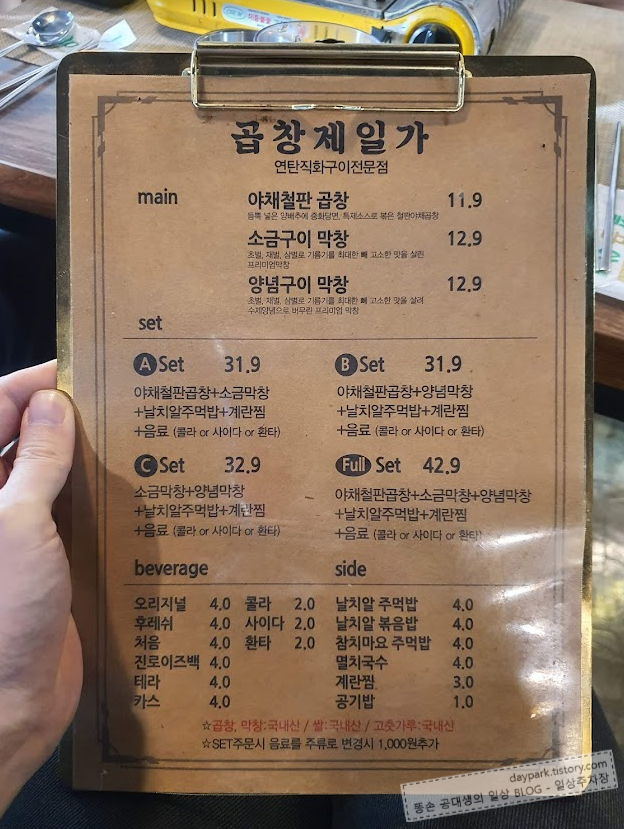 곱창제일가
연탄직화구이전문점
main
야채철판 곱창 11.9
듬뿍 넣은 양배추에 중화당면, 특제소스로 볶은 철판야채곱창
소금구이 막창 12.9
초벌, 재벌, 삼벌로 기름기를 최대한 빼 고소한 맛을 살린
프리미엄막창
양념구이 막창 12.9
초벌, 재벌, 삼벌로 기름기를 최대한 빼 고소한 맛을 살려
수제양념으로 버무린 프리미엄 막창
set
A Set 31.9
야채철판곱창+소금막창
+날치알주먹밥+계란찜
+음료 (콜라 or 사이다 or 환타)
B Set 31.9
야채철판곱창+양념막창
+날치알주먹밥+계란찜
+음료 (콜라 or 사이다 or 환타)
C Set 32.9
소금막창+양념막창
+날치알주먹밥+계란찜
+음료 (콜라 or 사이다 or 환타)
Full Set 42.9
야채철판곱창+소금막창+양념막창
+날치알주먹밥+계란찜
+음료 (콜라 or 사이다 or 환타)
beverage
오리지널 4.0 콜라 2.0
후레쉬 4.0 사이다 2.0
처음 4.0 환타 2.0
진로이즈백 4.0
테라 4.0
카스 4.0
side
날치알 주먹밥 4.0
날치알 볶음밥 4.0
참치마요 주먹밥 4.0
멸치국수 4.0
계란찜 3.0
공기밥 1.0
☆곱창, 막창:국내산 / 쌀:국내산 / 고춧가루:국내산
☆SET주문시 음료를 주류로 변경시 1,000원추가
daypark.tistory.com
똥손 공대생의 일상 BLOG - 일상주차장